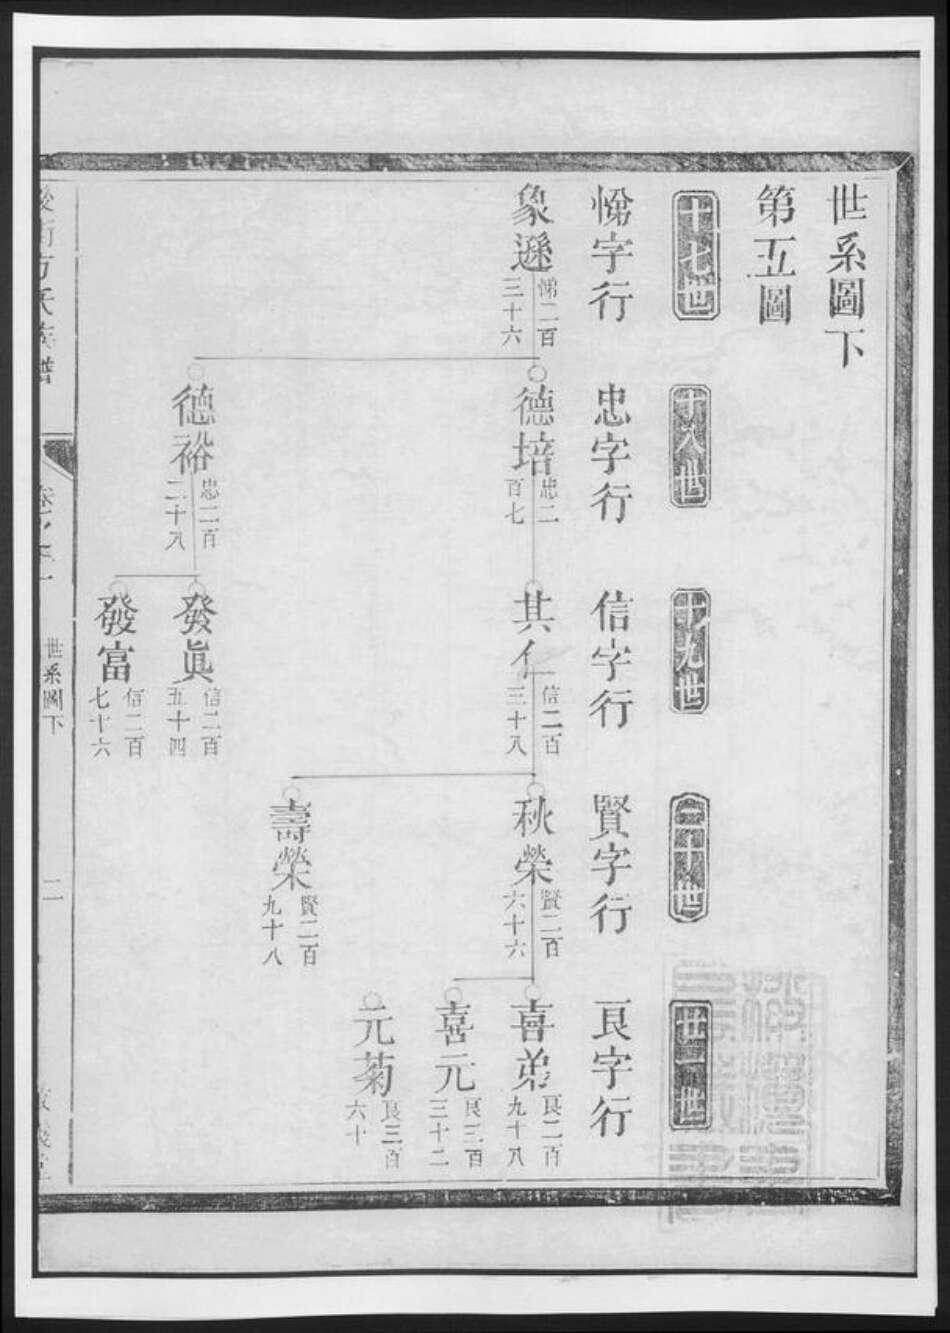 世系圖下
第五圖
十七世
十八世
十九世
二十世
廿一世
悌字行
忠字行
信字行
賢字行
良字行
象遜 悌二百三十六
德培 忠二百七
其仁 信二百三十八
秋榮 賢二百六十六
喜弟 良二百九十八
喜元 良三百三十二
元菊 良三百六十
壽榮 賢二百九十八
德裕 忠二百二十八
發眞 信二百五十四
發富 信二百七十六
方氏族譜
世系圖下
二